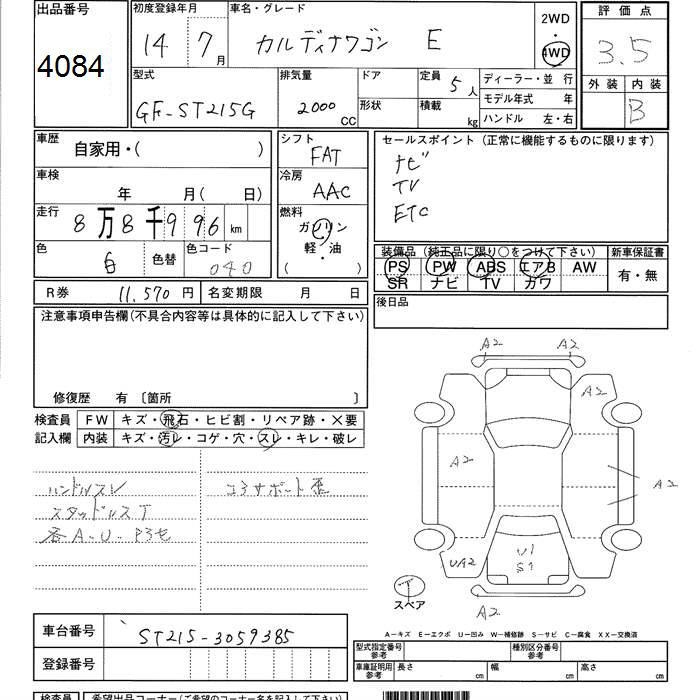 出品番号
4084
初度登録年月
14 7月
車名・グレード
カルディナワゴン E
2WD
4WD
評価点
3.5
外装 内装
B
型式
GF-ST215G
排気量
2000 CC
ドア
形状
定員 5人
積載 kg
ディーラー・並行
モデル年式 年
ハンドル 左・右
車歴
自家用・( )
車検
年 月(日)
走行
8万8千996km
色
色替
色コード
040
シフト
FAT
冷房
AAC
燃料
ガソリン
軽・油
( )
セールスポイント(正常に機能するものに限ります)
ナビ
TV
ETC
装備品(純正品に限り○をつけて下さい)
PS PW ABS エアB AW
SR ナビ TV カワ
新車保証書
有・無
後日品
R券 11,570円
名変期限 月 日
注意事項申告欄(不具合内容等は具体的に記入して下さい)
修復歴 有〔箇所 〕
検査員
記入欄
FW キズ・飛石・ヒビ割・リペア跡・×要
内装 キズ・汚レ・コゲ・穴・スレ・キレ・破レ
ハンドルスレ
スタッドレスT
各A-U-P3セ
コアサポート歪
A2 A2
A2
A2
A2
UA2
U1
S1
A2
T
スペア
A-キズ E-エクボ U-凹み W-補修跡 S-サビ C-腐食 XX-交換済
車台番号
ST215-3059385
登録番号
型式指定番号
参考
種別区分番号
参考
車庫証明用
参考
長さ cm
幅 cm
高さ cm
検査員
希望出品コーナー(ご希望のコーナー名を記入して下さい)